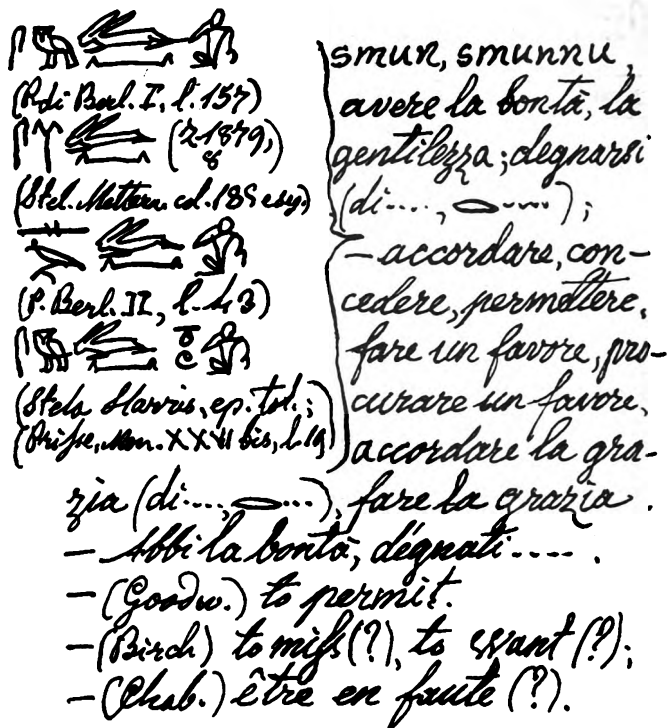 (P. di Berl. I, l. 157)
(Z 1879,
8
(Stel. Mettern. col. 185 e sg.)
(P. Berl. II, l. 43)
(Stela Harris, ep. tol.;
(Prisse, Mon. XXVI bis, l. 19)
smun, smunnu,
avere la bontà, la
gentilezza; degnarsi
(di...., 𓂋....);
– accordare, con-
cedere, permettere,
fare un favore, pro-
curare un favore,
accordare la gra-
zia (di...., 𓂋...), fare la grazia.
– Abbi la bontà, dégnati ----.
– (Goodw.) to permit.
– (Birch) to miss (?), to want (?);
– (Chab.) être en faute (?).